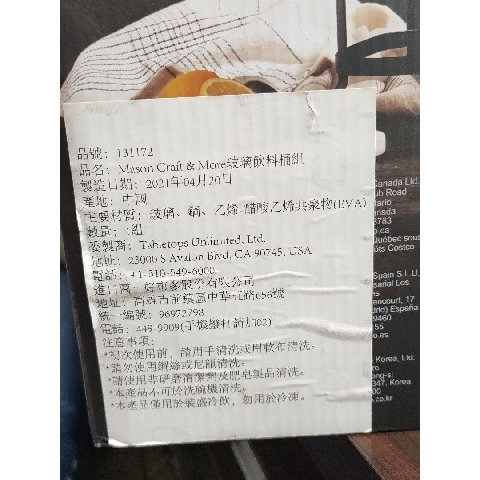 品號: 131172
品名: Mason Craft & More玻璃飲料桶組
製造日期: 2021年04月20日
產地: 中國
主要材質: 玻璃、鐵、乙烯-醋酸乙烯共聚物(EVA)
數量: 1組
委製商: Tabletops Unlimited, Ltd.
地址: 23000 S Avalon Blvd, CA 90745, USA
電話: +1-310-549-6000
進口商: 好市多股份有限公司
地址: 高雄市前鎮區中華五路656號
統一編號: 96972798
電話: 449-9909(手機撥打請加02)
注意事項:
*初次使用前, 請用手清洗或用軟布清洗。
*請勿使用鋼絲或尼龍清洗。
*請使用非研磨清潔劑及肥皂製品清洗。
*本產品不可於洗碗機清洗。
*本產品僅用於裝盛冷飲, 勿用於冷凍。
Canada Ltd.
Road
ario
nada
3783
o.ca
Québec sous
ts Costco
Spain S.L.U.
sarial Los
es
encourt, 17
drid) España
9460
s
Korea, Ltd.
ro
ng-si
347, Korea
000
o.kr